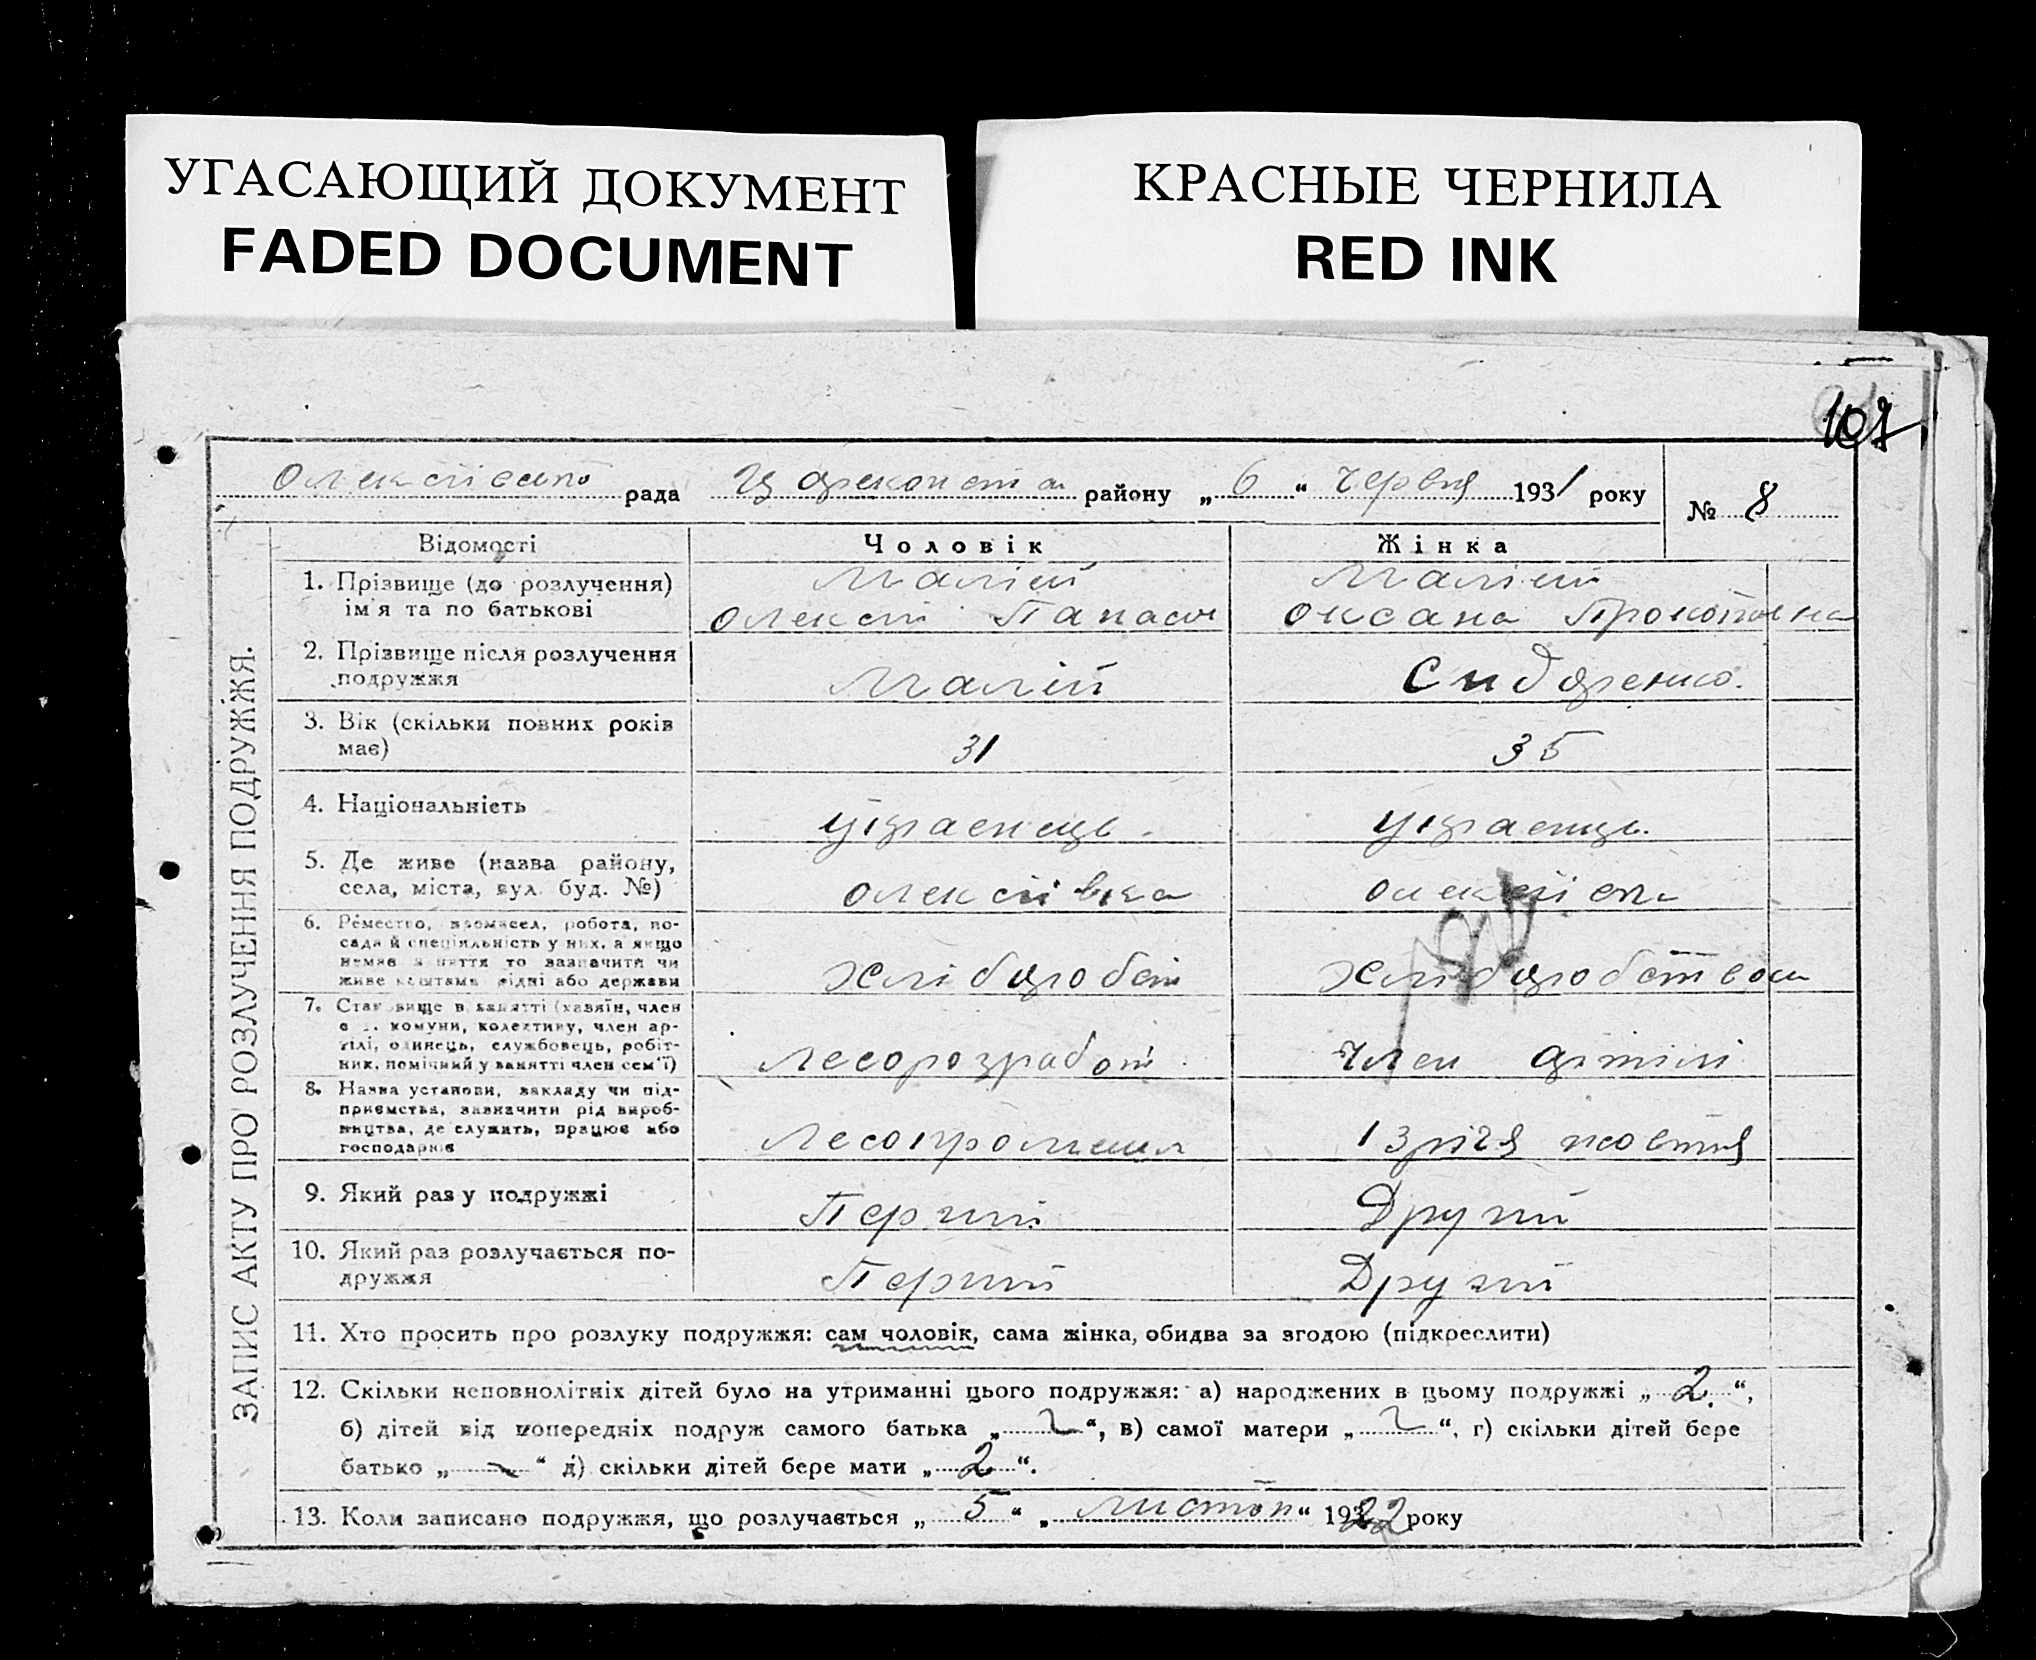 УГАСАЮЩИЙ ДОКУМЕНТ
FADED DOCUMENT
КРАСНЫЕ ЧЕРНИЛА
RED INK
107
рада району „ 6 “ Червня 1931 року № 8
ЗАПИС АКТУ ПРО РОЗЛУЧЕННЯ ПОДРУЖЖЯ.
Відомості Чоловік Жінка
1. Прізвище (до розлучення) Малій Малій
ім'я та по батькові Олексій Панасов Оксана Прокопівна
2. Прізвище після розлучення
подружжя Малій Сидоренко.
3. Вік (скільки повних років
має) 31 35
4. Національність Українець Українць.
5. Де живе (назва району,
села, міста, вул. буд. №) Олексіївка
6. Ремество, промисел, робота, по-
сада й спеціяльність у них, а якщо
немає заняття то зазначити чи
живе коштами рідні або держави Хлібороб
7. Становище в занятті (хазяїн, член
с. г. комуни, колективу, член ар-
тілі, одинець, службовець, робіт-
ник, помічний у занятті член сем'ї) Лесорозработ Член артілі
8. Назва установи, закладу чи під-
приємства, зазначити рід вироб-
ництва, де служить, працює або
господарює 13 річя жовтня
9. Який раз у подружжі Перший Другий
10. Який раз розлучається по-
дружжя Перший Другий
11. Хто просить про розлуку подружжя: сам чоловік, сама жінка, обидва за згодою (підкреслити)
12. Скільки неповнолітніх дітей було на утриманні цього подружжя: а) народжених в цьому подружжі „ 2 “,
б) дітей від попередніх подруж самого батька „ “, в) самої матери „ “, г) скільки дітей бере
батько „ - “ д) скільки дітей бере мати „ 2 “.
13. Коли записано подружжя, що розлучається „ 5 “ „ Листоп “ 1922 року